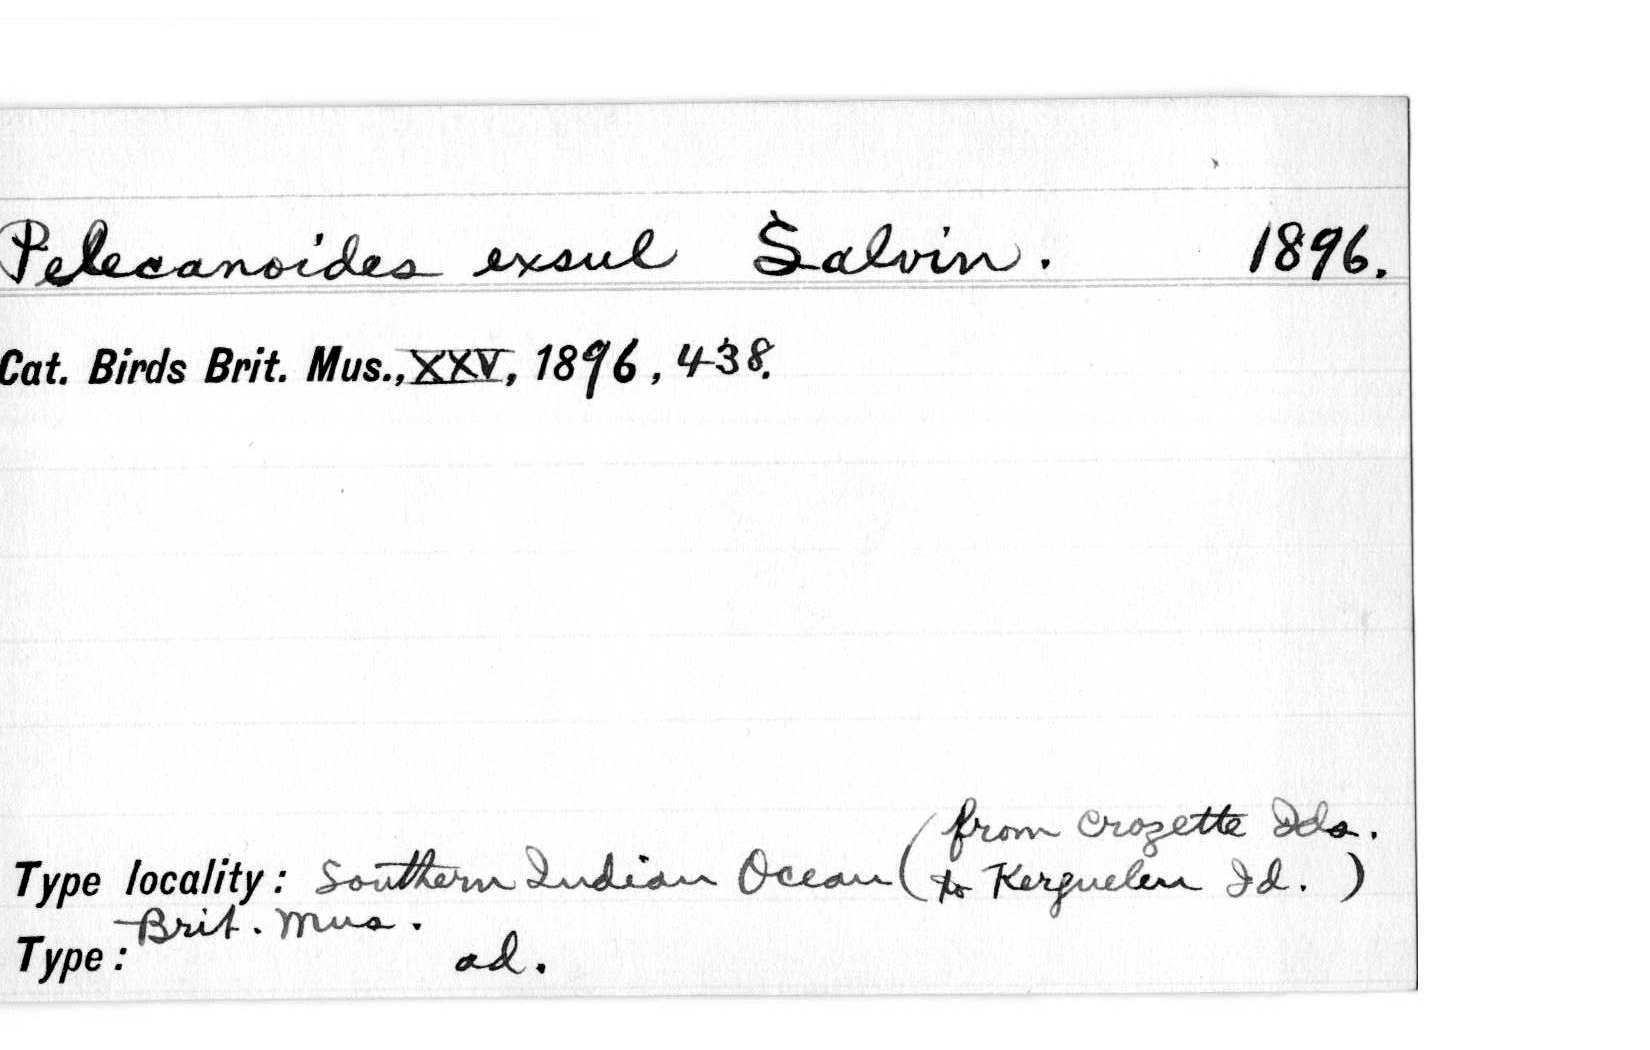 Pelecanoides exsul Salvin. 1896.
Cat. Birds Brit. Mus., XXV, 1896, 438.
(from Crozette Ids.
Type locality: Southern Indian Ocean to Kerguelen Id.)
Brit. Mus.
Type: ad.